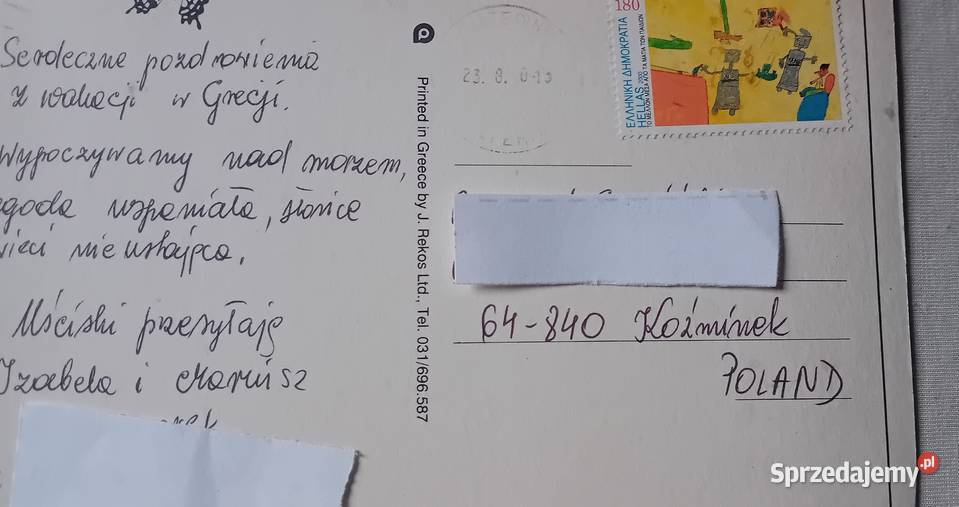 Serdeczne pozdrowienia
z wakacji w Grecji.
Wypoczywamy nad morzem,
goda wspaniała, słońce
wieci nieustająco.
Uściski przesyłają
Izabela i Mariusz
Printed in Greece by J. Rekos Ltd., Tel. 031/696.587
23. 8.
180
ΕΛΛΗΝΙΚΗ ΔΗΜΟΚΡΑΤΙΑ
HELLAS 2000
ΤΟ ΜΕΛΛΟΝ ΜΕΣΑ ΑΠΟ ΤΑ ΜΑΤΙΑ ΤΩΝ ΠΑΙΔΙΩΝ
64-840 Koźminek
POLAND
Sprzedajemy.pl